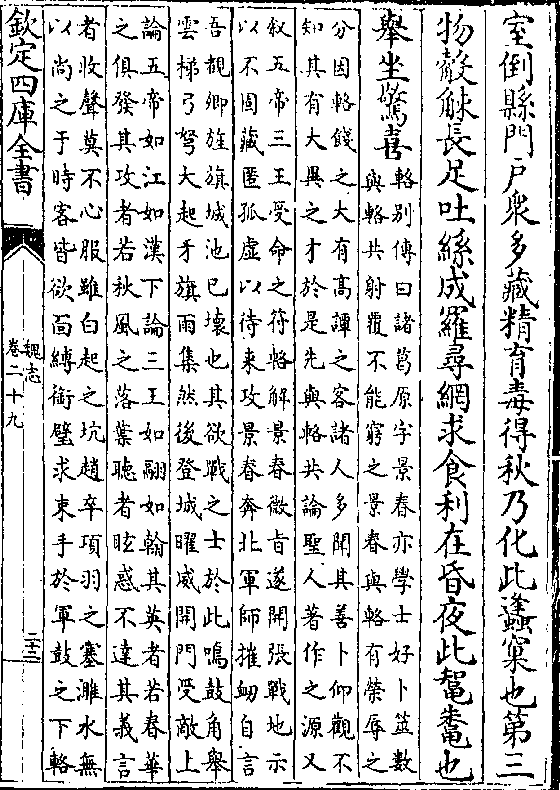 室倒縣門戶衆多藏精育毒得秋乃化此蠭窠也第三
物觳觫長足吐絲成羅尋網求食利在昏夜此鼅鼄也
舉坐驚喜
輅别傳曰諸葛原字景春亦學士好卜筮數
與輅共射覆不能窮之景春與輅有榮辱之
分因輅餞之大有髙譚之客諸人多聞其善卜仰觀不
知其有大異之才於是先與輅共論聖人著作之源又
叙五帝三王受命之符輅解景春微旨遂開張戰地示
以不固藏匿孤虛以待來攻景春奔北軍師摧衂自言
吾覩卿旌旗城池已壞也其欲戰之士於此鳴鼓角舉
雲梯弓弩大起牙旗雨集然後登城曜威開門受敵上
論五帝如江如漢下論三王如翮如翰其英者若春華
之俱發其攻者若秋風之落葉聽者眩惑不達其義言
者收聲莫不心服雖白起之坑趙卒項羽之塞濉水無
以尚之于時客皆欲面縛銜璧求束手於軍鼓之下輅
欽定四庫全書
魏志
卷二十九
二十二